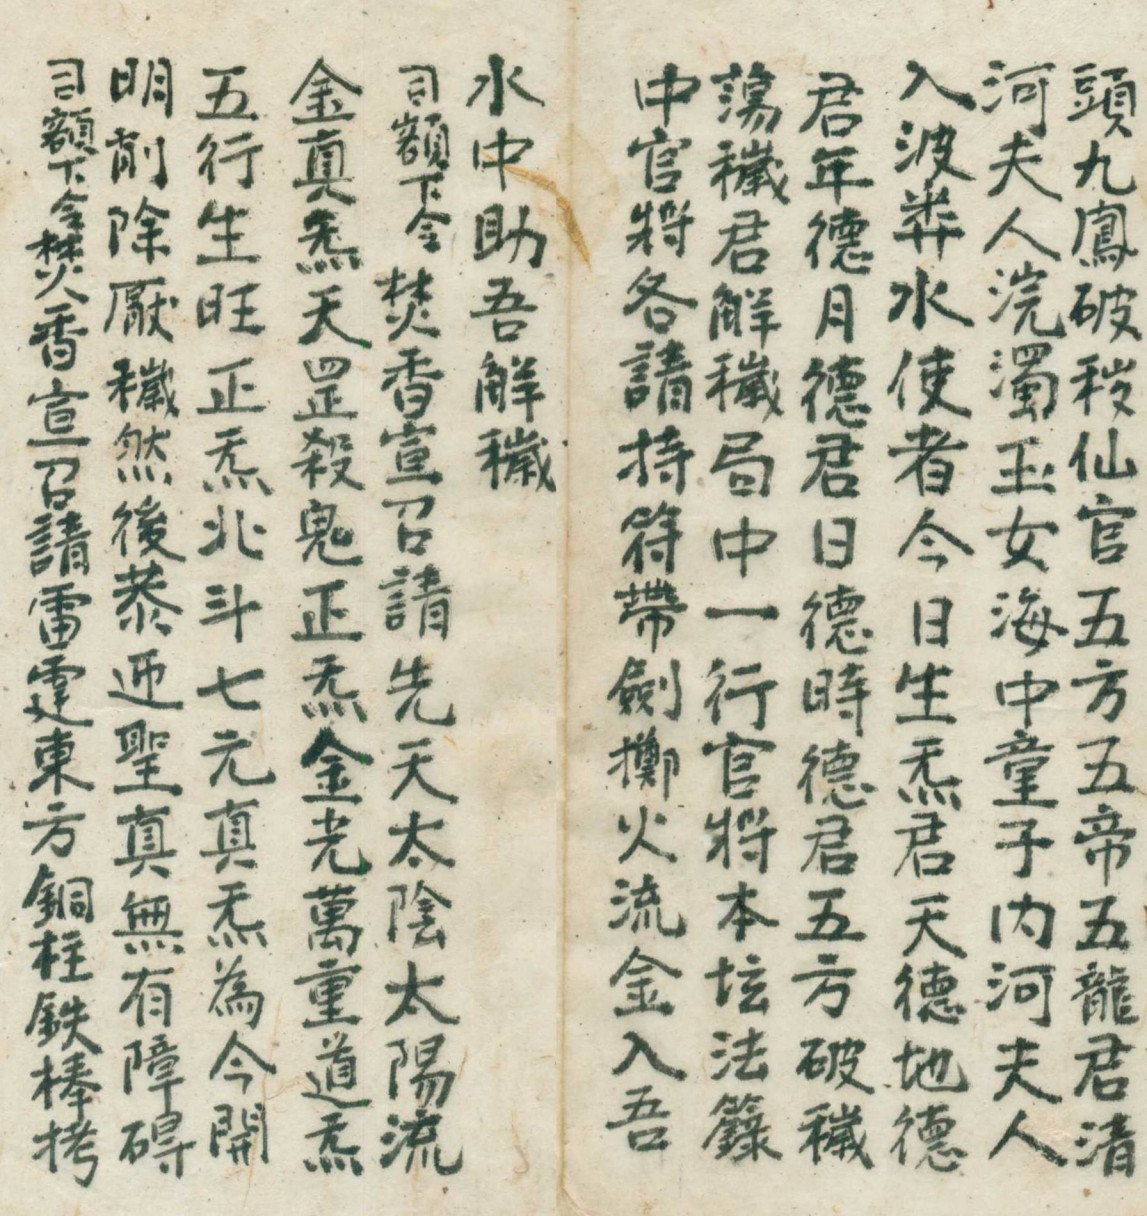 頭九鳳破秽仙官五方五帝五龍君清
河夫人浣濁玉女海中童子内河夫人
入波莽水使者今日生炁君天德地德
君年德月德君日德時德君五方破穢
蕩穢君解穢局中一行官將本坛法籙
中官將各請持符帶劍擲火流金入吾
水中助吾解穢
司額下令焚香宣召請先天太陰太陽流
金真炁天罡殺鬼正炁金光萬重道炁
五行生旺正炁北斗七元真炁為今開
明剷除厭穢然後恭迎聖真無有障碍
司額下令焚香宣召請雷霆東方銅柱鉄棒拷